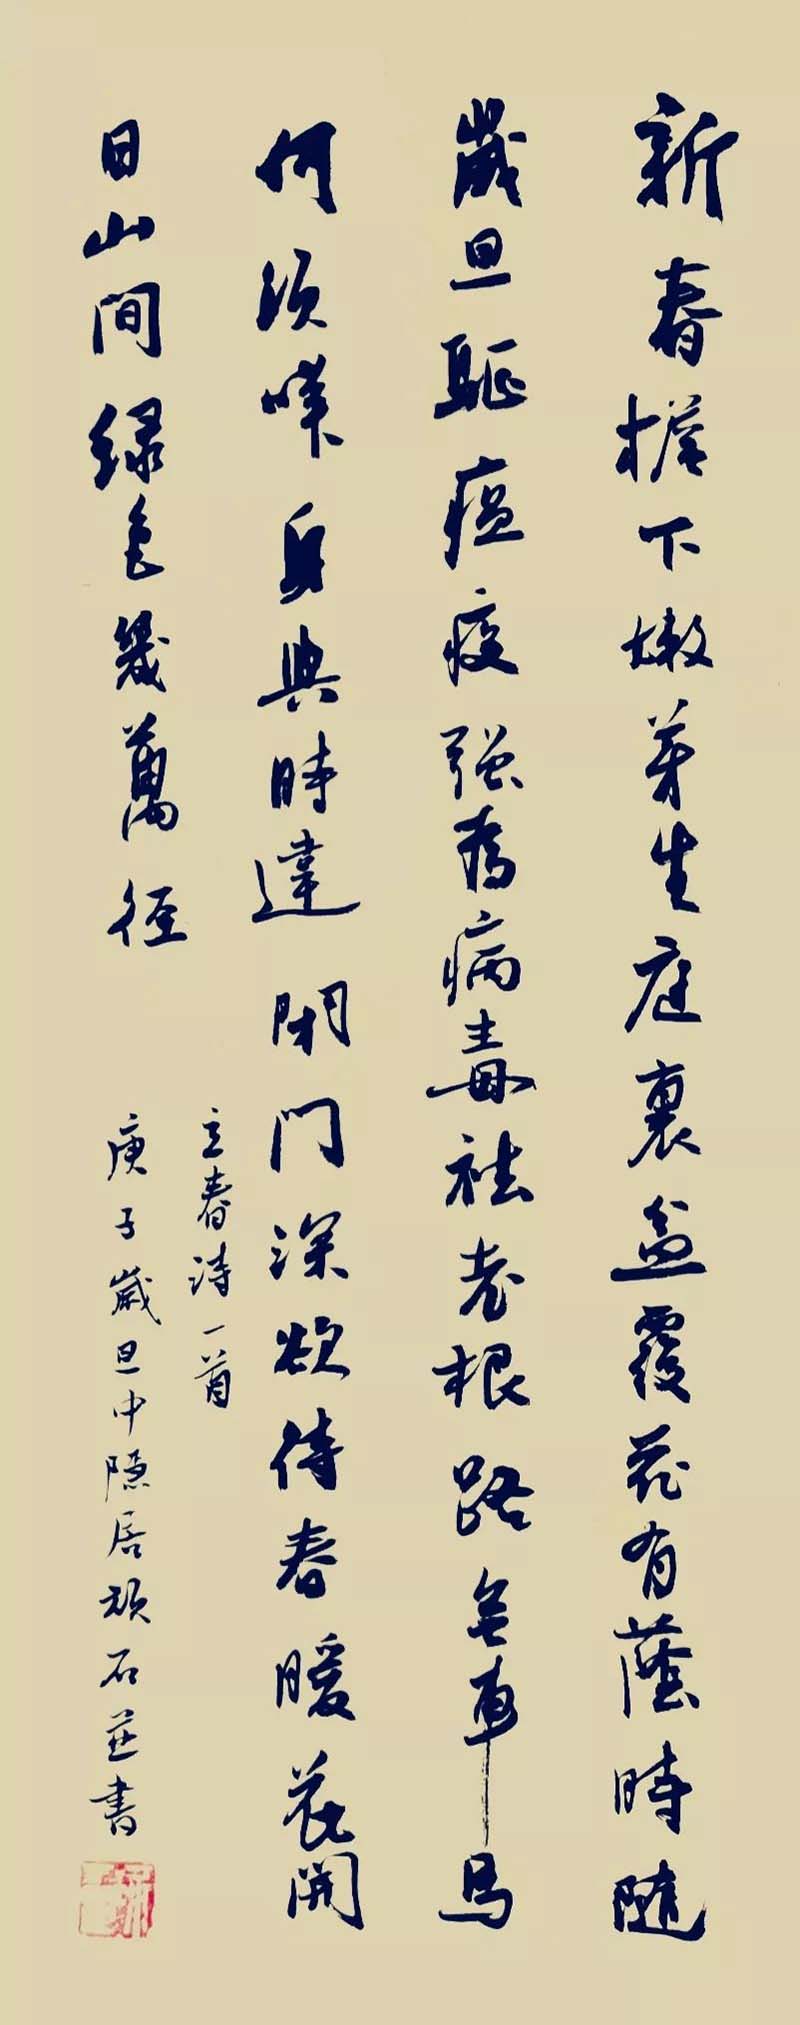 新春檐下嫩芽生庭裏盆覆花有蔭時隨
歲旦驅瘟疫強為病毒祛老根路無車馬
何須嘆身與時違閉門深欲待春暖花開
日山間綠色幾萬徑
立春詩一首
庚子歲旦中隱居頑石並書